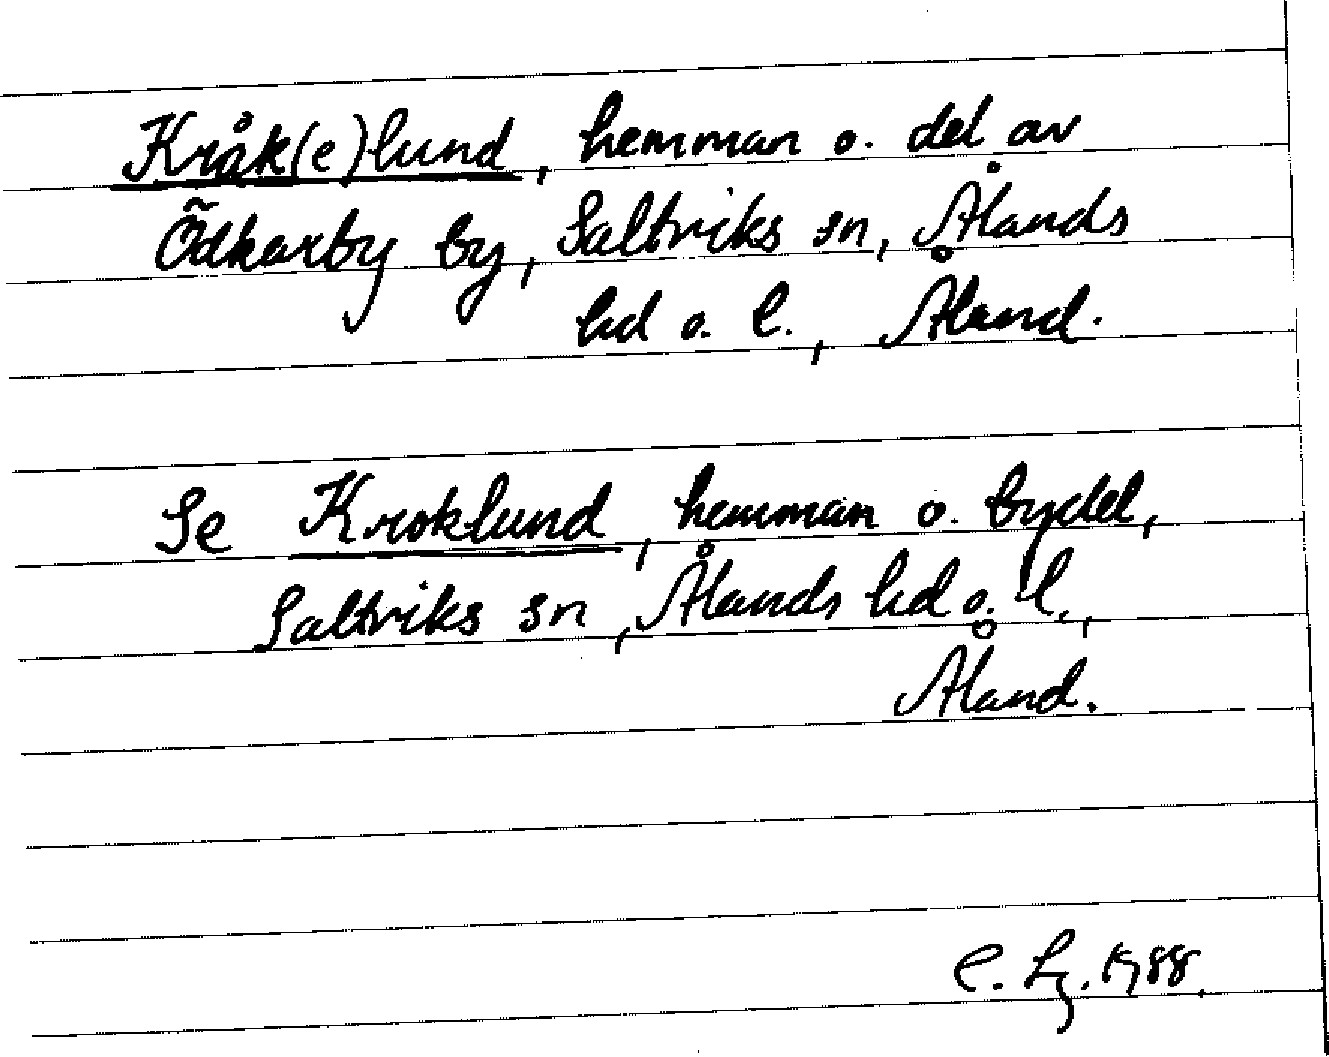 Kråk(e)lund, hemman o. del av
Ödkarby by, Saltviks sn, Ålands
hd o. l., Åland.
Se Kroklund, hemman o. bydel,
Saltviks sn, Ålands hd o. l.,
Åland.
C. Lg. 1988.